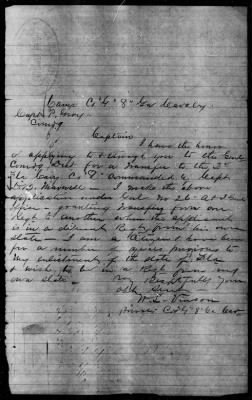 Camp Co "G" 8" Ga Cavalry
Capt P. Gray
Comdg
Captain
I have the honor
of applying to & through you to the Genl
Comdg Dept for a transfer to the 2"
Fla Cav Co "F" commanded by Capt
I make the above
application under Genl. No 26 A & I Genl
granting transfers from one
Regt to another when the applicant
is in a different Regt from his own
state. I am a citizen & have been
for a number of years previous to
my enlistment of the state of Fla
& wish to be in a Regt from my
own state. Respectfully your
obt Servt
W. L. Vinson
Co "G" 8" Ga Cav